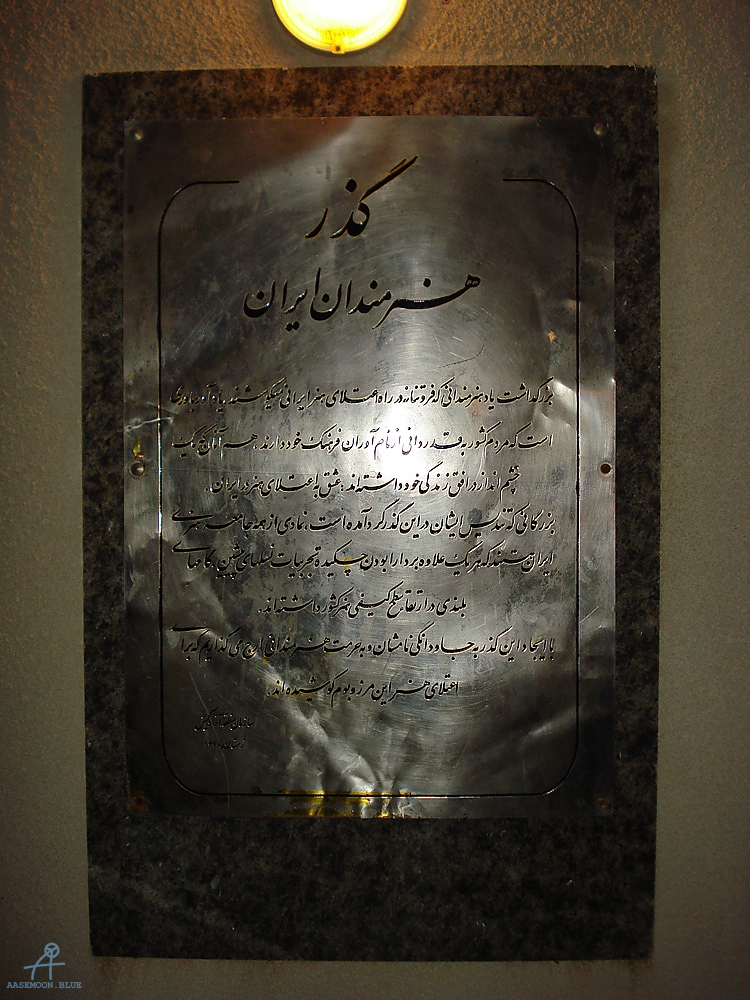 گذر
هنرمندان ایران
بزرگداشت یاد هنرمندانی که فروتنانه در راه اعتلای هنر ایرانی می‌کوشند، یادآور باوری
است که مردم کشور به قدردانی از نام آوران فرهنگ خود دارند. هنرآنان یک
چشم انداز در افق زندگی خود داشته‌اند؛ عشق به اعتلای هنر در ایران.
بزرگانی که تندیس ایشان در این گذر گرد آمده است، نمادی از همه جامعه هنری
ایران هستند که هر یک علاوه بر دارا بودن چکیده تجربیات نسلهای پیشین، گامهای
بلندی در ارتقای سطح کیفی هنر کشور داشته‌اند.
با ایجاد این گذر به جاودانگی نامشان و به حرمت هنرمندانی ارج می‌گذاریم که برای
اعتلای هنر این مرز و بوم کوشیده‌اند.
سازمان منطقه آزاد کیش
زمستان
AASEMOON.BLUE